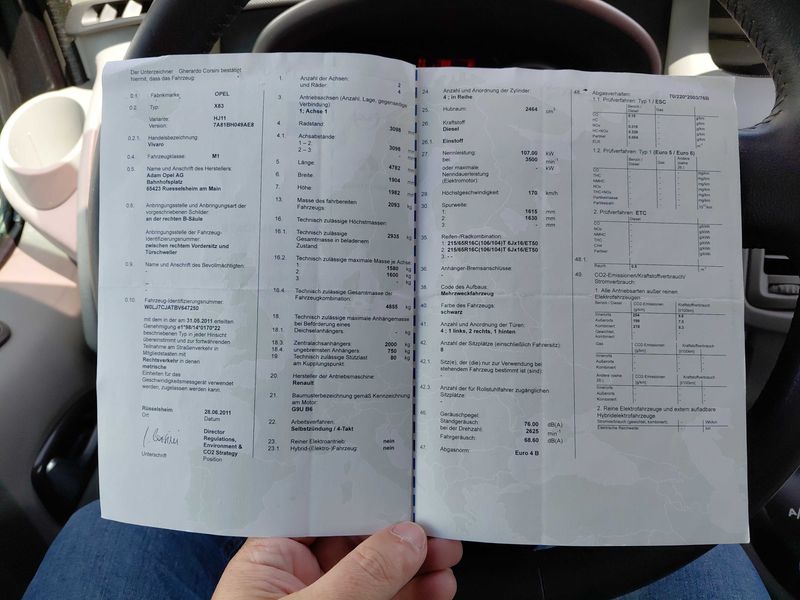 Der Unterzeichner Gherardo Corsini bestätigt
hiermit, dass das Fahrzeug:
0.1. Fabrikmarke OPEL
0.2. Typ: X83
Variante: HJ11
Version: 7A81BH049AE8
0.2.1. Handelsbezeichnung:
Vivaro
0.4. Fahrzeugklasse: M1
0.5. Name und Anschrift des Herstellers
Adam Opel AG
Bahnhofsplatz
65423 Russelsheim am Main
0.8. Anbringungsstelle und Anbringungsart der
vorgeschriebenen Schilder
an der rechten B-Säule
Anbringungsstelle der Fahrzeug-
Identifizierungsnummer:
zwischen rechtem Vordersitz und
Türschweller
0.9. Name und Anschrift des Bevollmächtigten:
--
0.10. Fahrzeug-Identifizierungsnummer:
W0LJ7CJATBV647250
mit dem in der am 31.05.2011 erteilten
Genehmigung e1*98/14*0170*22
beschriebenen Typ in jeder Hinsicht
übereinstimmt und zur fortwährenden
Teilnahme am Straßenverkehr in
Mitgliedstaaten mit
Rechtsverkehr in denen
metrische
Einheiten für das
Geschwindigkeitsmessgerät verwendet
werden, zugelassen werden kann.
Rüsselsheim 28.06.2011
Datum
Director
Regulations,
Environment &
CO2 Strategy
Unterschrift Position
1. Anzahl der Achsen: 2
und Räder: 4
3. Antriebsachsen (Anzahl, Lage, gegenseitige
Verbindung)
1; Achse 1
4. Radstand: 3098 mm
4.1. Achsabstände:
1 – 2: 3098 mm
2 – 3: - mm
5. Länge: 4782 mm
6. Breite: 1904 mm
7. Höhe: 1982 mm
13. Masse des fahrbereiten
Fahrzeugs: 2093 kg
16. Technisch zulässige Höchstmassen:
16.1. Technisch zulässige
Gesamtmasse in beladenem 2935 kg
Zustand:
16.2. Technisch zulässige maximale Masje je Achse:
1. 1580 kg
2. 1600 kg
3. - kg
16.4. Technisch zulässige Gesamtmasse der
Fahrzeugkombination:
4855 kg
18. Technisch zulässige maximale Anhängemasse
bei Beförderung eines
18.1. Deichselanhängers. - kg
18.3. Zentralachsanhängers 2000 kg
18.4. ungebremsten Anhängers 750 kg
19. Technisch zulässige Stützlast 80 kg
am Kupplungspunkt:
20. Hersteller der Antriebsmaschine:
Renault
21. Baumusterbezeichnung gemäß Kennzeichnung
am Motor:
G9U B6
22. Arbeitsverfahren:
Selbstzündung / 4-Takt
23. Reiner Elektroantrieb: nein
23.1. Hybrid-(Elektro-)Fahrzeug: nein
24. Anzahl und Anordnung der Zylinder:
4 ; in Reihe
25. Hubraum: 2464 cm³
26. Kraftstoff
Diesel
26.1. Einstoff
27. Nennleistung: 107.00 kW
bei: 3500 min-1
oder maximale - kW
Nenndauerleistung
(Elektromotor):
28. Höchstgeschwindigkeit: 170 km/h
30. Spurweite:
1. 1615 mm
2. 1630 mm
3. - mm
35. Reifen-/Radkombination:
1: 215/65R16C(106/104)T 6Jx16/ET50
2: 215/65R16C(106/104)T 6Jx16/ET50
3: - -
36. Anhänger-Bremsanschlüsse:
-
38. Code des Aufbaus:
Mehrzweckfahrzeug
40. Farbe des Fahrzeugs:
schwarz
41. Anzahl und Anordnung der Türen:
4 ; 1 links, 2 rechts, 1 hinten
42. Anzahl der Sitzplätze (einschließlich Fahrersitz):
8
42.1. Sitz(e), der (die) nur zur Verwendung bei
stehendem Fahrzeug bestimmt ist (sind):
-
42.3. Anzahl der für Rollstuhlfahrer zugänglichen
Sitzplätze:
-
46. Geräuschpegel:
Standgeräusch: 76.00 dB(A)
bei der Drehzahl: 2625 min-1
Fahrgeräusch: 68.60 dB(A)
47. Abgasnorm: Euro 4 B
48. Abgasverhalten: 70/220*2003/76B
1.1. Prüfverfahren: Typ 1 / ESC
1.2. Prüfverfahren: Typ 1 (Euro 5 / Euro 6)
2. Prüfverfahren: ETC
48.1.
49. CO2-Emissionen/Kraftstoffverbrauch/
Stromverbrauch:
1. Alle Antriebsarten außer reinen
Elektrofahrzeugen
2. Reine Elektrofahrzeuge und extern aufladbare
Hybridelektrofahrzeuge
Stromverbrauch (gewichtet, kombiniert)
Elektrische Reichweite